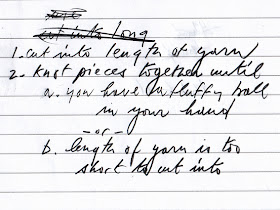 cut into long
1. cut into length of yarn
2. knot pieces together until
a. you have a fluffy ball
in your hand
-or-
b. length of yarn is too
short to cut into